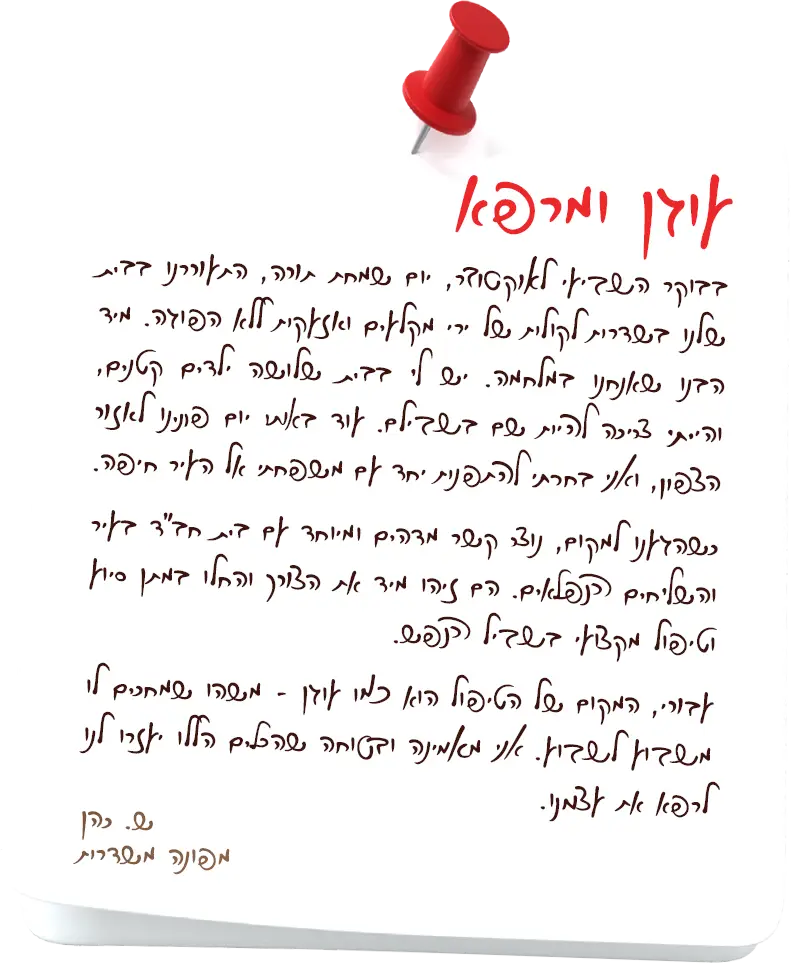 עוגן ומרפא
בבוקר השביעי לאוקטובר, יום שמחת תורה, התעוררנו בבית
שלנו בשדרות לקולות של ירי מקלעים ואזעקות ללא הפוגה. מיד
הבנו שאנחנו במלחמה. יש לי בבית שלושה ילדים קטנים,
והייתי צריכה להיות שם בשבילם. עוד באותו יום פונינו לאזור
הצפון, ואני בחרתי להתפנות יחד עם משפחתי אל העיר חיפה.
כשהגענו למקום, נוצר קשר מדהים ומיוחד עם בית חב"ד בעיר
והשליחים הנפלאים. הם זיהו מיד את הצורך והחלו במתן סיוע
וטיפול מקצועי בשביל הנפש.
עבורי, המקום של הטיפול הוא כמו עוגן - משהו שמחכים לו
משבוע לשבוע. אני מאמינה ובטוחה שהכלים הללו יעזרו לנו
לרפא את עצמנו.
ש. כהן
מפונה משדרות